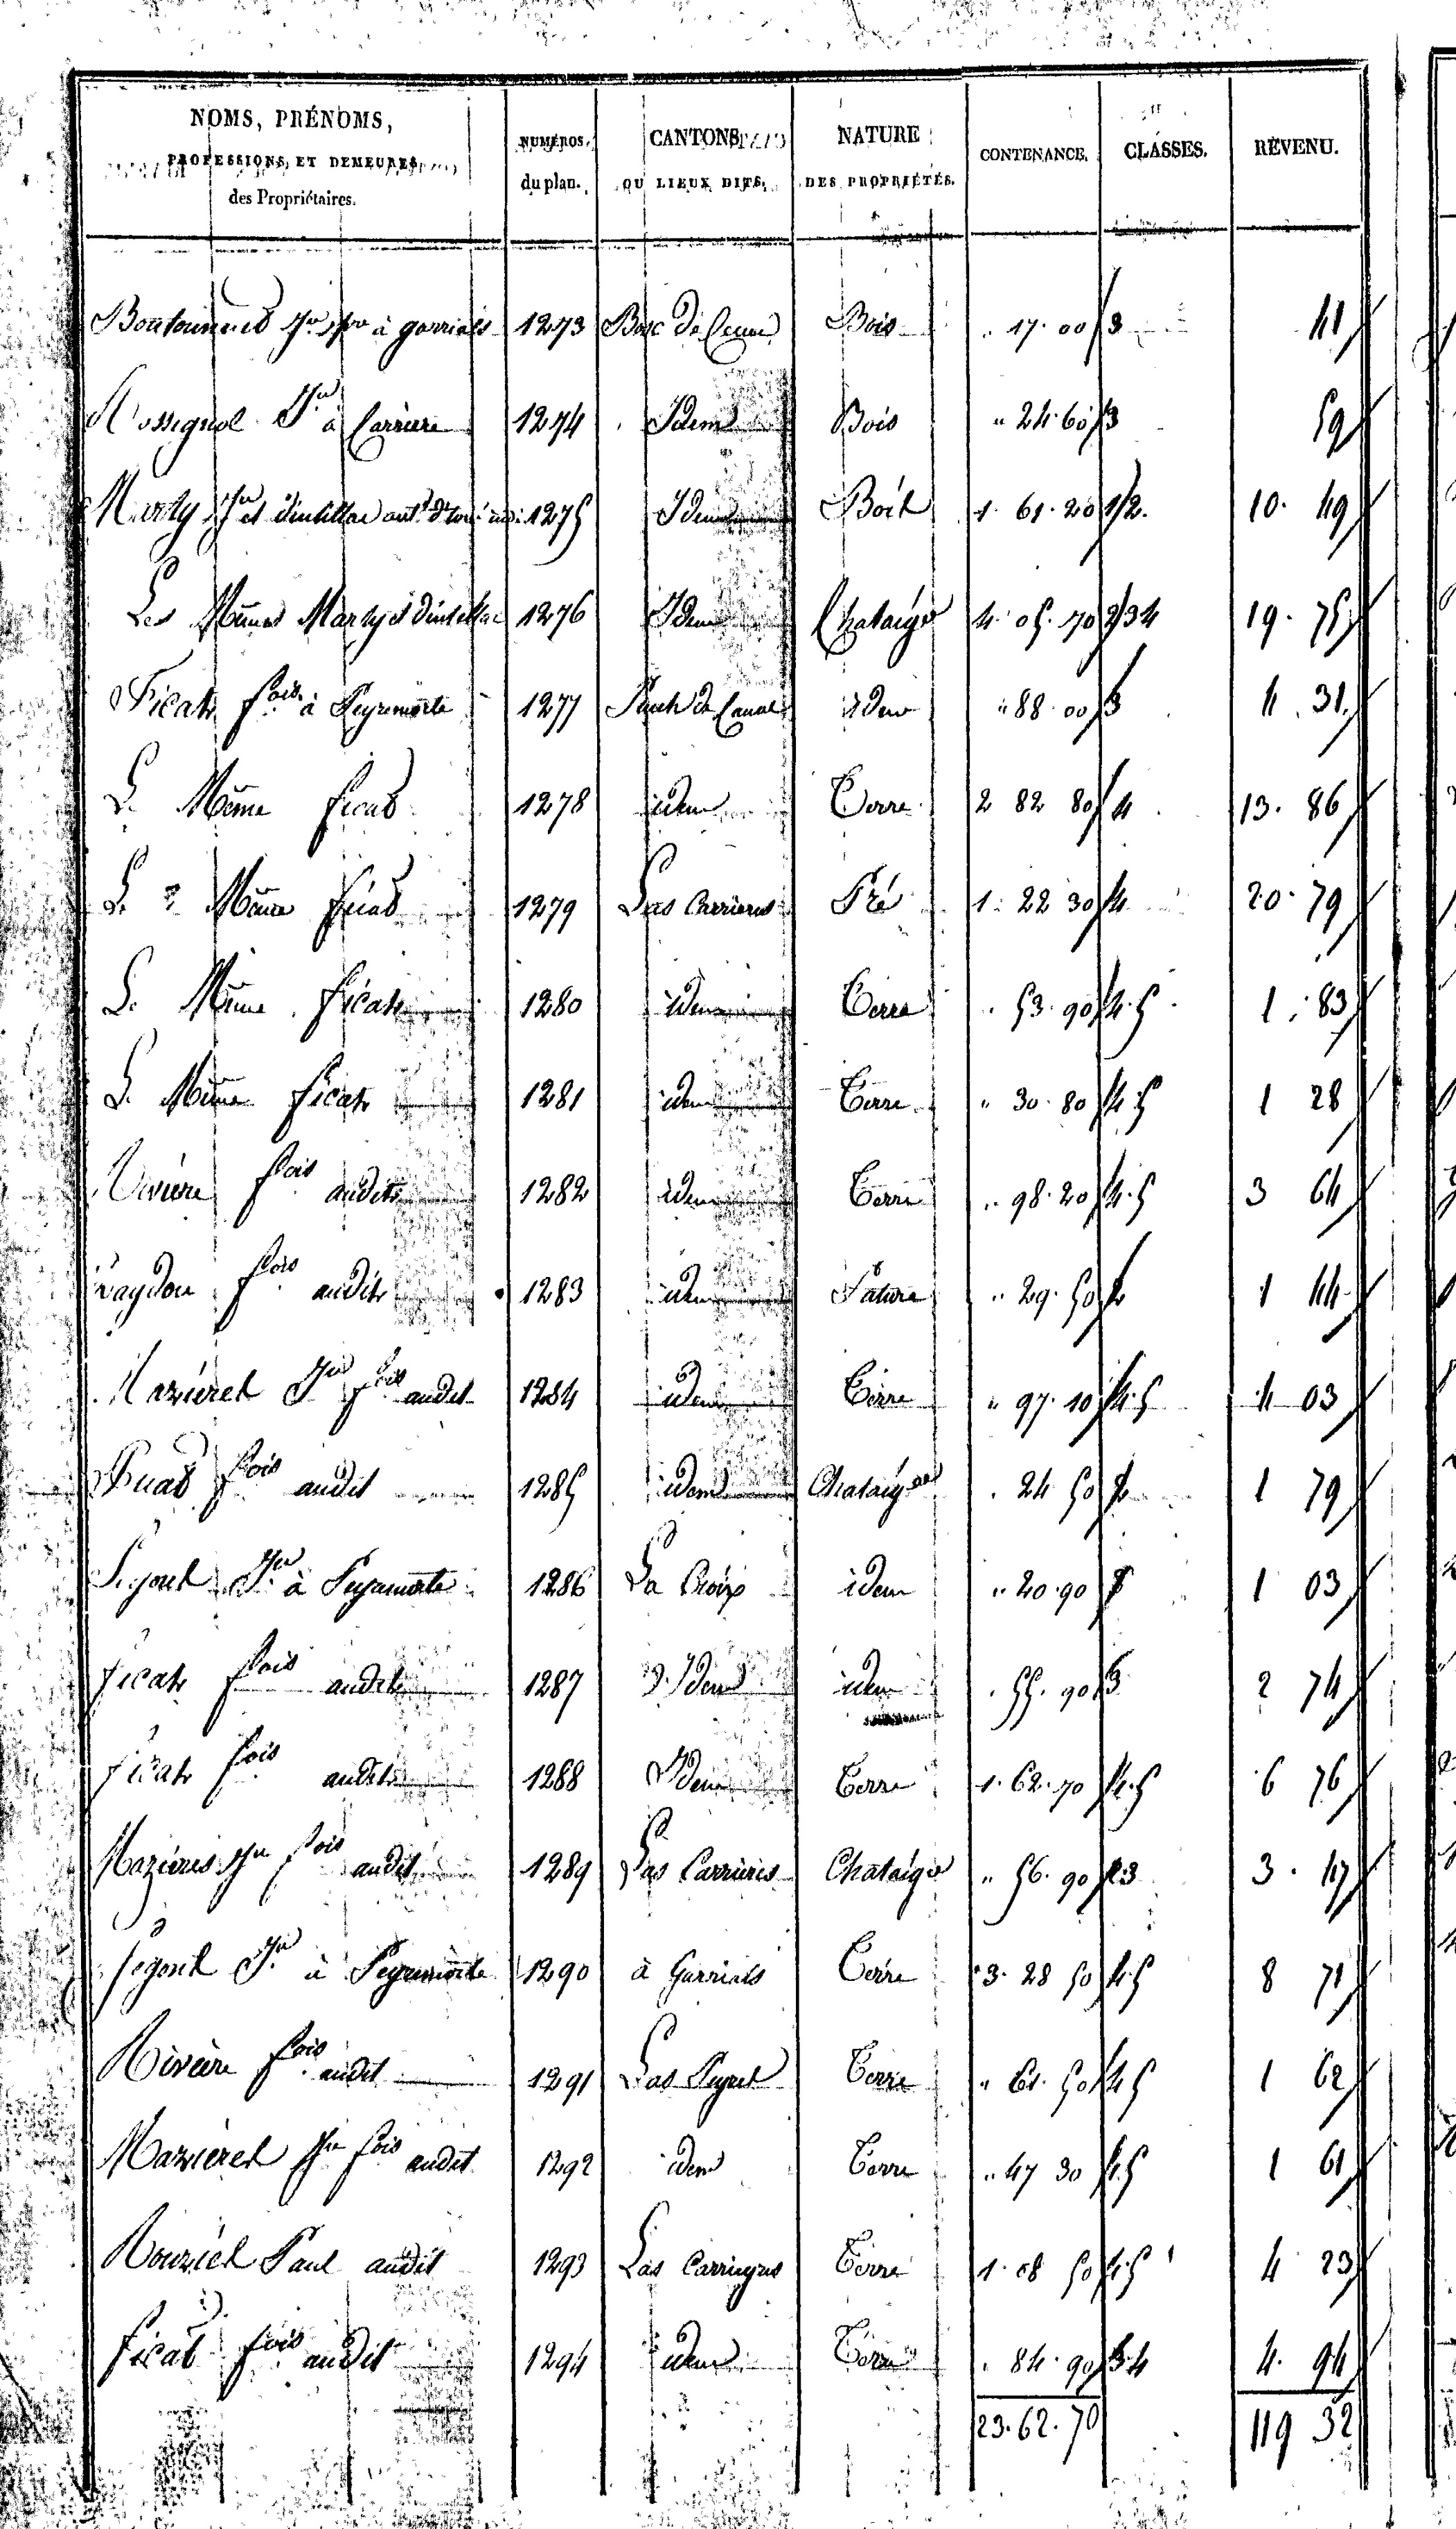 NOMS, PRÉNOMS, PROFESSIONS, ET DEMEURES des Propriétaires. NUMÉROS. du plan. CANTONS OU LIEUX DITS. NATURE DES PROPRIÉTÉS. CONTENANCE. CLASSES. REVENU.
Jn à garrials 1273 Bosc de Bois " 17. 00 3 41
Rossignol Jn à Carrière 1274 Idem Bois " 24. 60 3 59
Marty Jn et 1275 Idem Bois 1. 61. 20 1/2. 10. 49
Les Mêmes Marty et 1276 Idem Chataigr 4. 05. 70 2/34 19. 75
Ficat fois à Peyremorte 1277 Puech de idem " 88. 00 3 4. 31
Le Même Ficat 1278 idem Terre 2 82 80 4 13. 86
Le Même Ficat 1279 Las Carrieres Pré 1. 22 30 4 20. 79
Le Même Ficat 1280 idem Terre . 53. 90 4. 5 1. 83
Le Même Ficat 1281 idem Terre " 30. 80 4. 5 1 28
Rivière fois audit 1282 idem Terre " 98. 20 4. 5 3 64
fois audit 1283 idem Pature " 29. 50 1 44
Mazieres Jn fois audit 1284 idem Terre " 97. 10 4. 5 4 03
Ficat fois audit 1285 idem Chataigr . 24 50 2 1 79
Jn à Peyremorte 1286 La Croix idem " 20. 90 1 03
ficat fois audit 1287 Idem idem . 55. 90 3 2 74
ficat fois audit 1288 Idem Terre 1. 62. 70 4. 5 6 76
Mazieres Jn fois audit 1289 Las Carrieres Chataigr " 56. 90 23 3. 47
Jn à Peyremorte 1290 à Garrials Terre 3. 28 50 4. 5 8 71
Rivière fois audit 1291 Las Peyres Terre " 61. 50 4 5 1 62
Mazieres Jn fois audit 1292 idem Terre " 47 30 4. 5 1 61
Rouziès Paul audit 1293 Las Terre 1. 08 50 4. 5 4 23
Ficat fois audit 1294 idem Terre . 84. 90 3. 4 4. 94
23. 62. 70 119 32